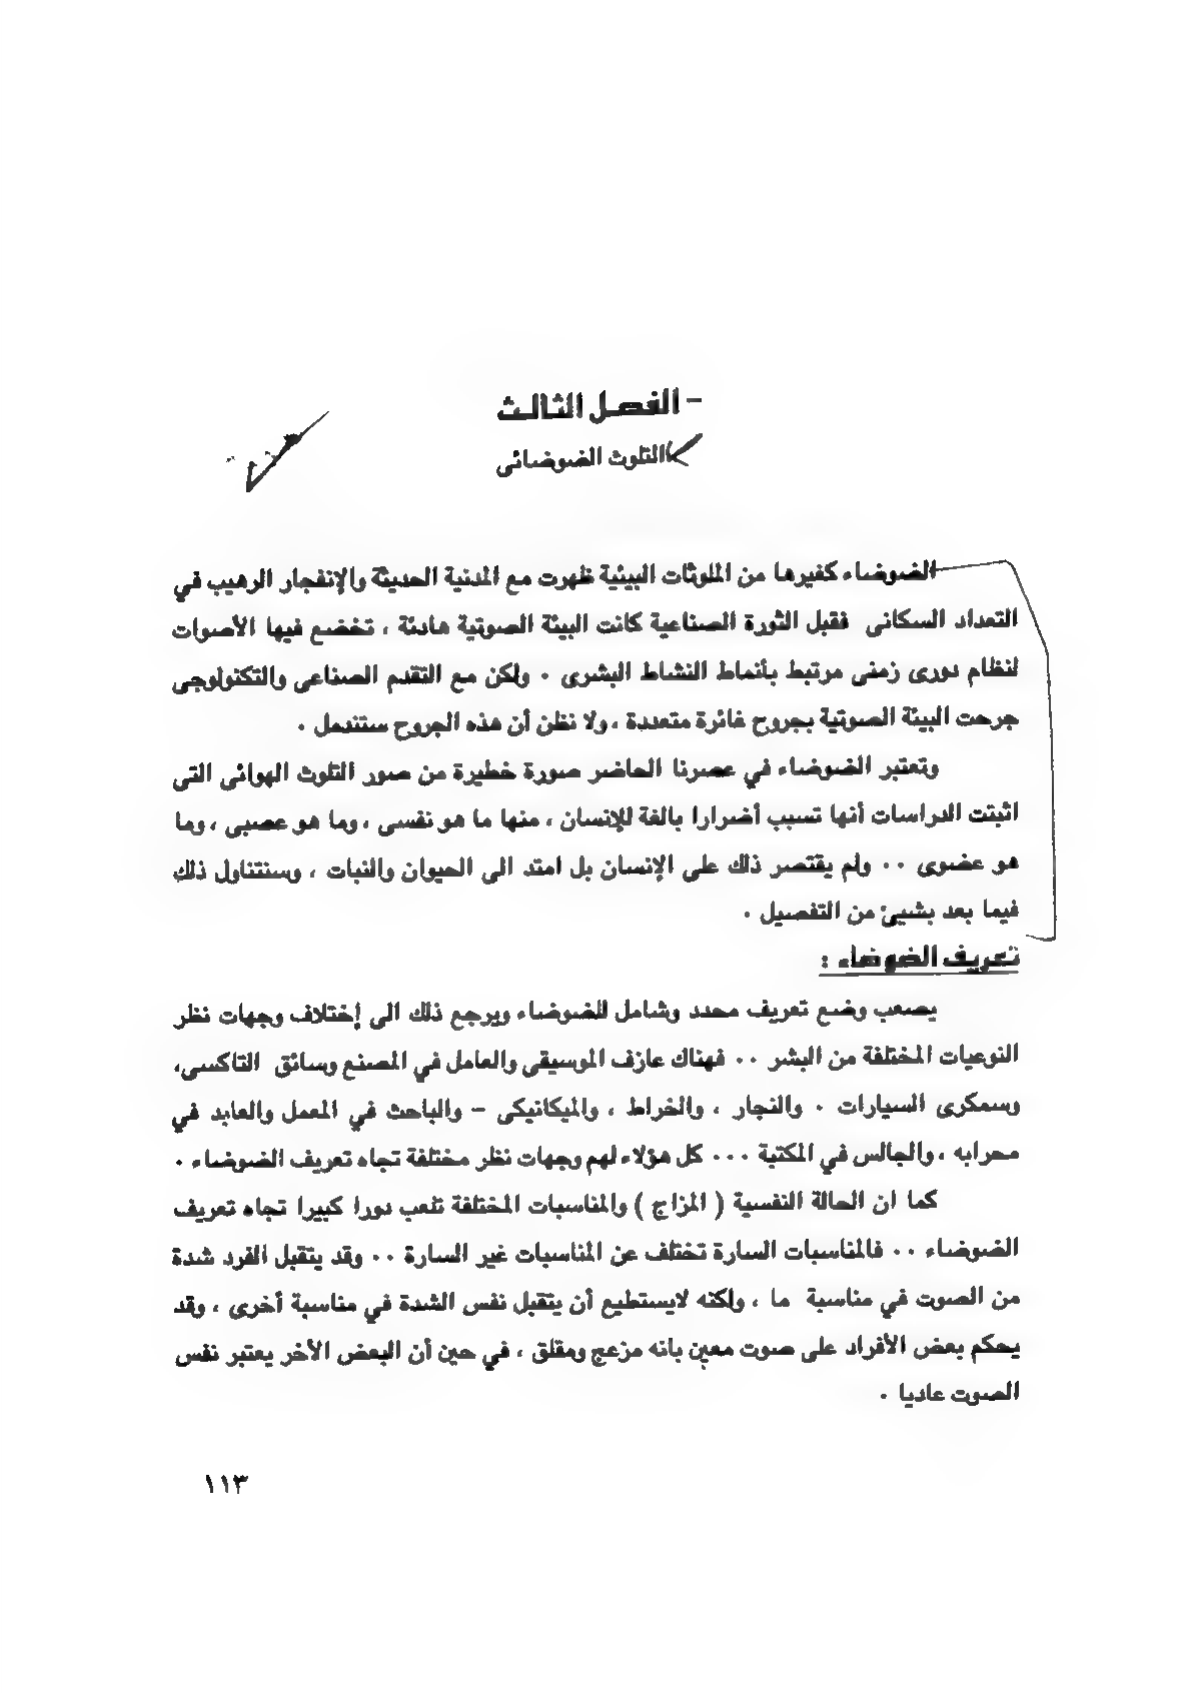 - الفصل الثالث
التلوث الضوضائى
الضوضاء كغيرها من الملوثات البيئية ظهرت مع المدنية الحديثة والإنفجار الرهيب في
التعداد السكانى فقبل الثورة الصناعية كانت البيئة الصوتية هادئة ، تخضع فيها الأصوات
لنظام دورى زمنى مرتبط بأنماط النشاط البشرى ٠ ولكن مع التقدم الصناعى والتكنولوجى
جرحت البيئة الصوتية بجروح غائرة متعددة ، ولا نظن أن هذه الجروح ستندمل ٠
وتعتبر الضوضاء في عصرنا الحاضر صورة خطيرة من صور التلوث الهوائى التى
اثبتت الدراسات أنها تسبب أضرارا بالغة للإنسان ، منها ما هو نفسى ، وما هو عصبى ، وما
هو عضوى ٠٠ ولم يقتصر ذلك على الإنسان بل امتد الى الحيوان والنبات ، وسنتناول ذلك
فيما بعد بشيئ من التفصيل ٠
تعريف الضوضاء :
يصعب وضع تعريف محدد وشامل للضوضاء ويرجع ذلك الى إختلاف وجهات نظر
النوعيات المختلفة من البشر ٠٠ فهناك عازف الموسيقى والعامل في المصنع وسائق التاكسى،
وسمكرى السيارات ٠ والنجار ، والخراط ، والميكانيكى - والباحث في المعمل والعابد في
محرابه ، والجالس في المكتبة ٠٠٠ كل هؤلاء لهم وجهات نظر مختلفة تجاه تعريف الضوضاء ٠
كما ان الحالة النفسية ( المزاج ) والمناسبات المختلفة تلعب دورا كبيرا تجاه تعريف
الضوضاء ٠٠ فالمناسبات السارة تختلف عن المناسبات غير السارة ٠٠ وقد يتقبل الفرد شدة
من الصوت في مناسبة ما ، ولكنه لايستطيع أن يتقبل نفس الشدة في مناسبة أخرى ، وقد
يحكم بعض الأفراد على صوت معين بانه مزعج ومقلق ، في حين أن البعض الأخر يعتبر نفس
الصوت عاديا ٠
١١٣